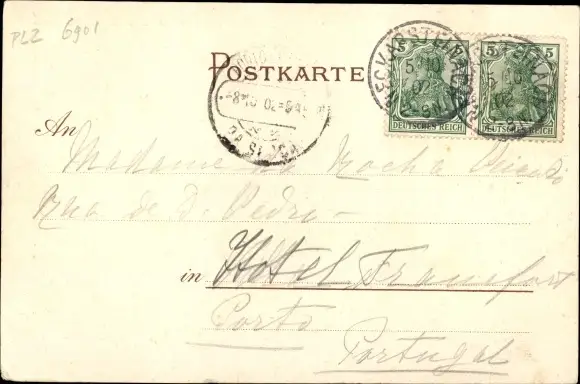 PLZ 6901
POSTKARTE
5
5
DEUTSCHES REICH
DEUTSCHES REICH
An
Madame da Rocha
Rua de D. Pedro -
in Hotel Francfort
Porto
Portugal